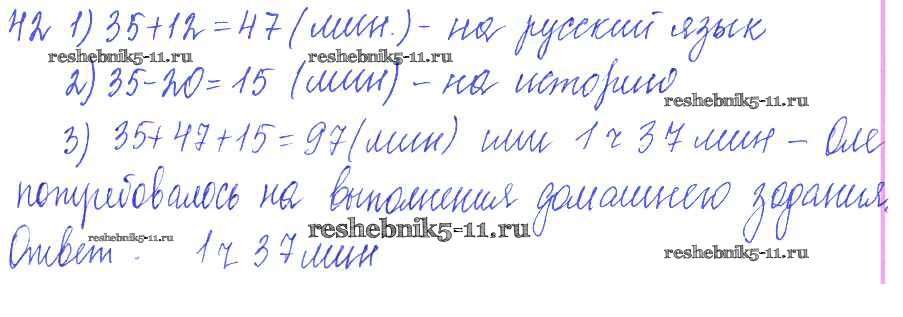 42 1) 35+12=47 (мин.) - на русский язык
reshebnik5-11.ru reshebnik5-11.ru
2) 35-20=15 (мин) - на историю
reshebnik5-11.ru
3) 35+47+15=97 (мин) или 1 ч 37 мин - Оле
потребовалось на выполнения домашнего задания.
reshebnik5-11.ru reshebnik5-11.ru reshebnik5-11.ru
Ответ: 1 ч 37 мин